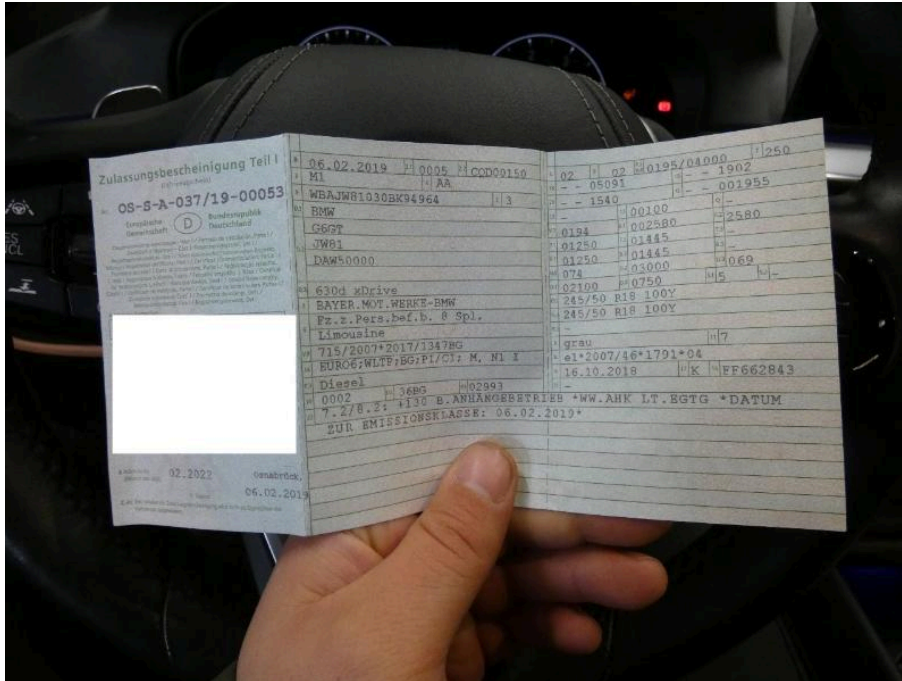 Zulassungsbescheinigung Teil I
OS-S-A-037/19-00053
Europäische
Gemeinschaft
D
Bundesrepublik
Deutschland
02.2022
Osnabrück,
06.02.2019
06.02.2019 0005 CQD00150
M1 AA
WBAJW81030BK94964 3
BMW
G6GT
JW81
DAW50000
630d xDrive
BAYER.MOT.WERKE-BMW
Fz.z.Pers.bef.b. 8 Spl.
Limousine
715/2007*2017/1347BG
EURO6;WLTP;BG;PI/CI; M, N1 I
Diesel
0002 36BG 02993
7.2/8.2: +130 B.ANHÄNGEBETRIEB *WW.AHK LT.EGTG *DATUM
ZUR EMISSIONSKLASSE: 06.02.2019*
02 02 0195/04000 250
- - 05091 - - 1902
- - 1540 - - 001955
- 00100 -
0194 002580 2580
01250 01445 -
01250 01445 -
074 03000 069
02100 0750 5 -
245/50 R18 100Y
245/50 R18 100Y
-
grau 7
e1*2007/46*1791*04
16.10.2018 K FF662843
-